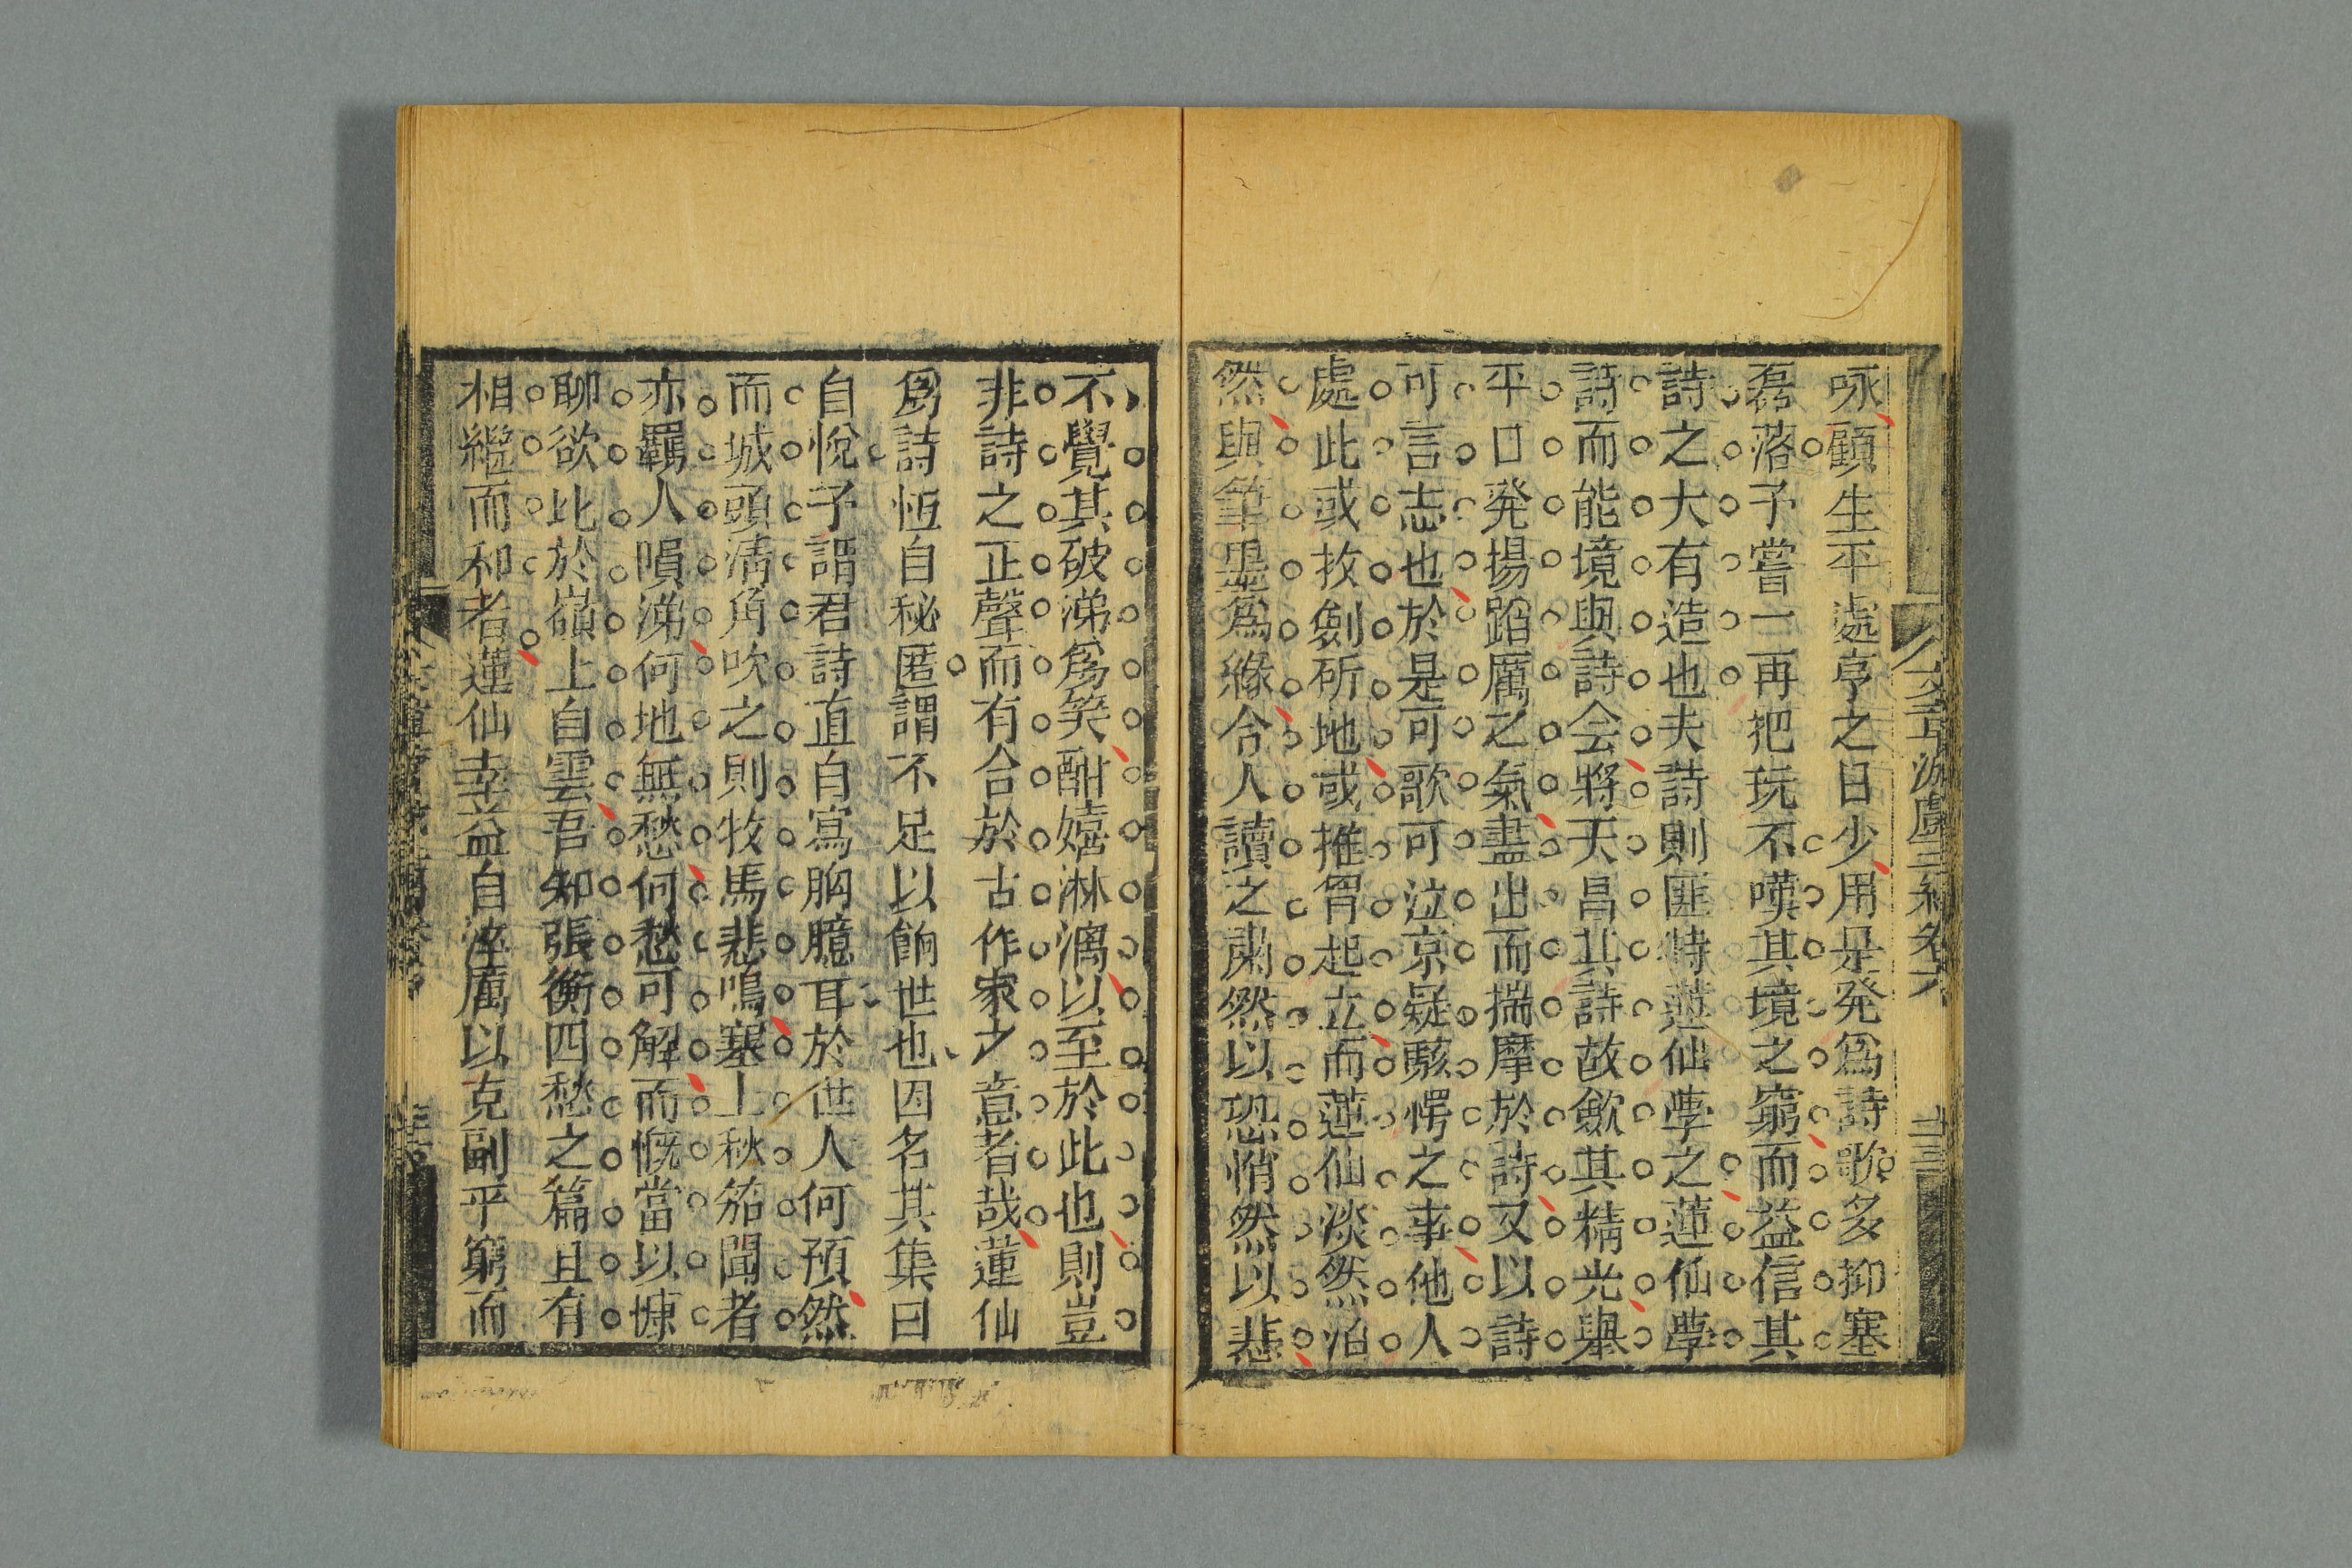 咏顧生平處亨之日少用是発爲詩歌多抑塞
磊落予嘗一再把玩不嘆其境之窮而益信其
詩之大有造也夫詩則匪特蓮仙學之蓮仙學
詩而能境與詩会將天昌其詩故歛其精光舉
平日発揚蹈厲之氣盡出而揣摩於詩又以詩
可言志也於是可歌可泣京疑駭愕之事他人
處此或抜劍斫地或推胃起立而蓮仙淡然泊
然與筆墨爲緣令人讀之肅然以恐悄然以悲
不覺其破涕爲笑酣嬉淋漓以至於此也則豈
非詩之正聲而有合於古作家之意者哉蓮仙
爲詩恆自秘匿謂不足以餉世也因名其集曰
自悅予謂君詩直自寫胸臆耳於世人何預然
而城頭清角吹之則牧馬悲鳴塞上秋笳聞者
亦羈人隕涕何地無愁何愁可解而慨當以慷
聊欲比於嶺上自雲吾知張衡四愁之篇且有
相繼而和者蓮仙幸益自淬厲以克副乎窮而